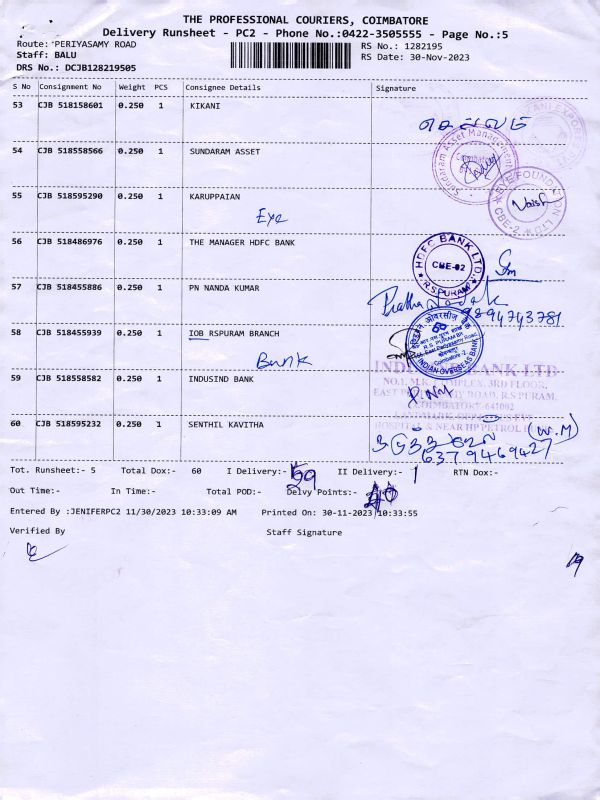 THE PROFESSIONAL COURIERS, COIMBATORE
Delivery Runsheet - PC2 - Phone No.:0422-3505555 - Page No.:5
Route: PERIYASAMY ROAD
RS No.: 1282195
Staff: BALU
RS Date: 30-Nov-2023
DRS No.: DCJB128219505
S No Consignment No Weight PCS Consignee Details Signature
53 CJB 518158601 0.250 1 KIKANI
54 CJB 518558566 0.250 1 SUNDARAM ASSET
Sundaram Asset Management
Coimbatore
55 CJB 518595290 0.250 1 KARUPPAIAN
Eye
EYE FOUNDATION LTD
CBE-2
56 CJB 518486976 0.250 1 THE MANAGER HDFC BANK
HDFC BANK LTD.
CBE-02
R.S PURAM
57 CJB 518455886 1 PN NANDA KUMAR
9894743781
58 CJB 518455939 0.250 1 IOB RSPURAM BRANCH
Bank
इंडियन ओवरसीज बैंक
R.S. PURAM BR
East Periyasamy Road
Coimbatore-2
INDIAN OVERSEAS BANK
59 CJB 518558582 0.250 1 INDUSIND BANK
BANK LTD
3RD FLOOR,
ROAD, R.S PURAM,
COIMBATORE-641002
HOSPITAL & NEAR HP PETROL
60 CJB 518595232 0.250 1 SENTHIL KAVITHA
(W.M)
6379469427
Tot. Runsheet:- 5 Total Dox:- 60 I Delivery:- 59 II Delivery:- 1 RTN Dox:-
Out Time:- In Time:- Total POD:- Delvy Points:-
Entered By :JENIFERPC2 11/30/2023 10:33:09 AM Printed On: 30-11-2023 10:33:55
Verified By Staff Signature